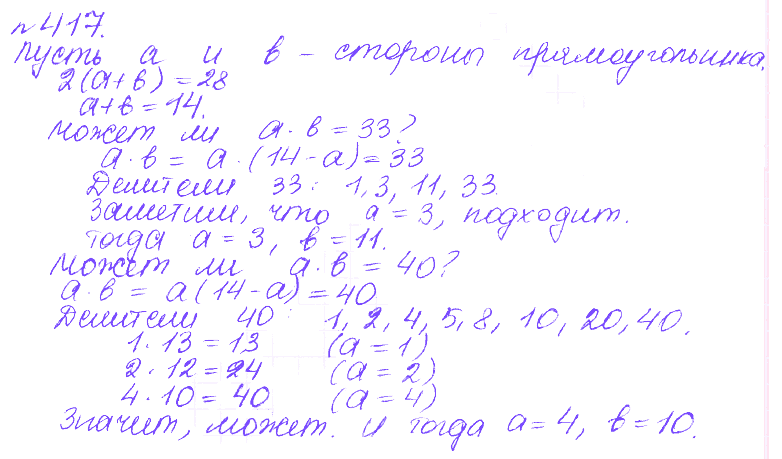 №417.
Пусть a и b - стороны прямоугольника.
2(a+b) = 28
a+b = 14.
Может ли a · b = 33?
a · b = a · (14 - a) = 33
Делители 33: 1, 3, 11, 33
Заметим, что a = 3, подходит.
Тогда a = 3, b = 11.
Может ли a · b = 40?
a · b = a (14 - a) = 40
Делители 40: 1, 2, 4, 5, 8, 10, 20, 40.
1 · 13 = 13 (a = 1)
2 · 12 = 24 (a = 2)
4 · 10 = 40 (a = 4)
Значит, может. И тогда a = 4, b = 10.